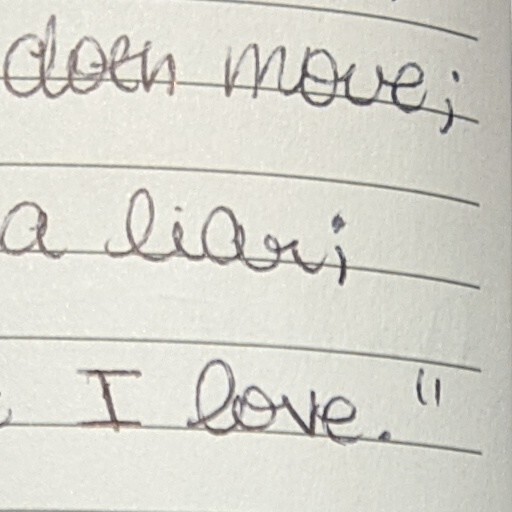 doth move;
a liar;
I love."